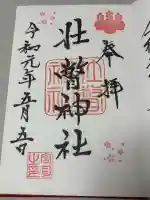 奉拝
壮瞥神社
令和元年五月五日